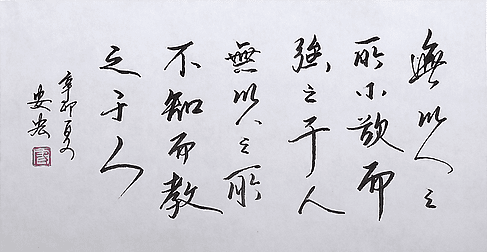 無以人之
所不欲而
強之于人
無以人之所
不知而教
之于人
辛卯夏